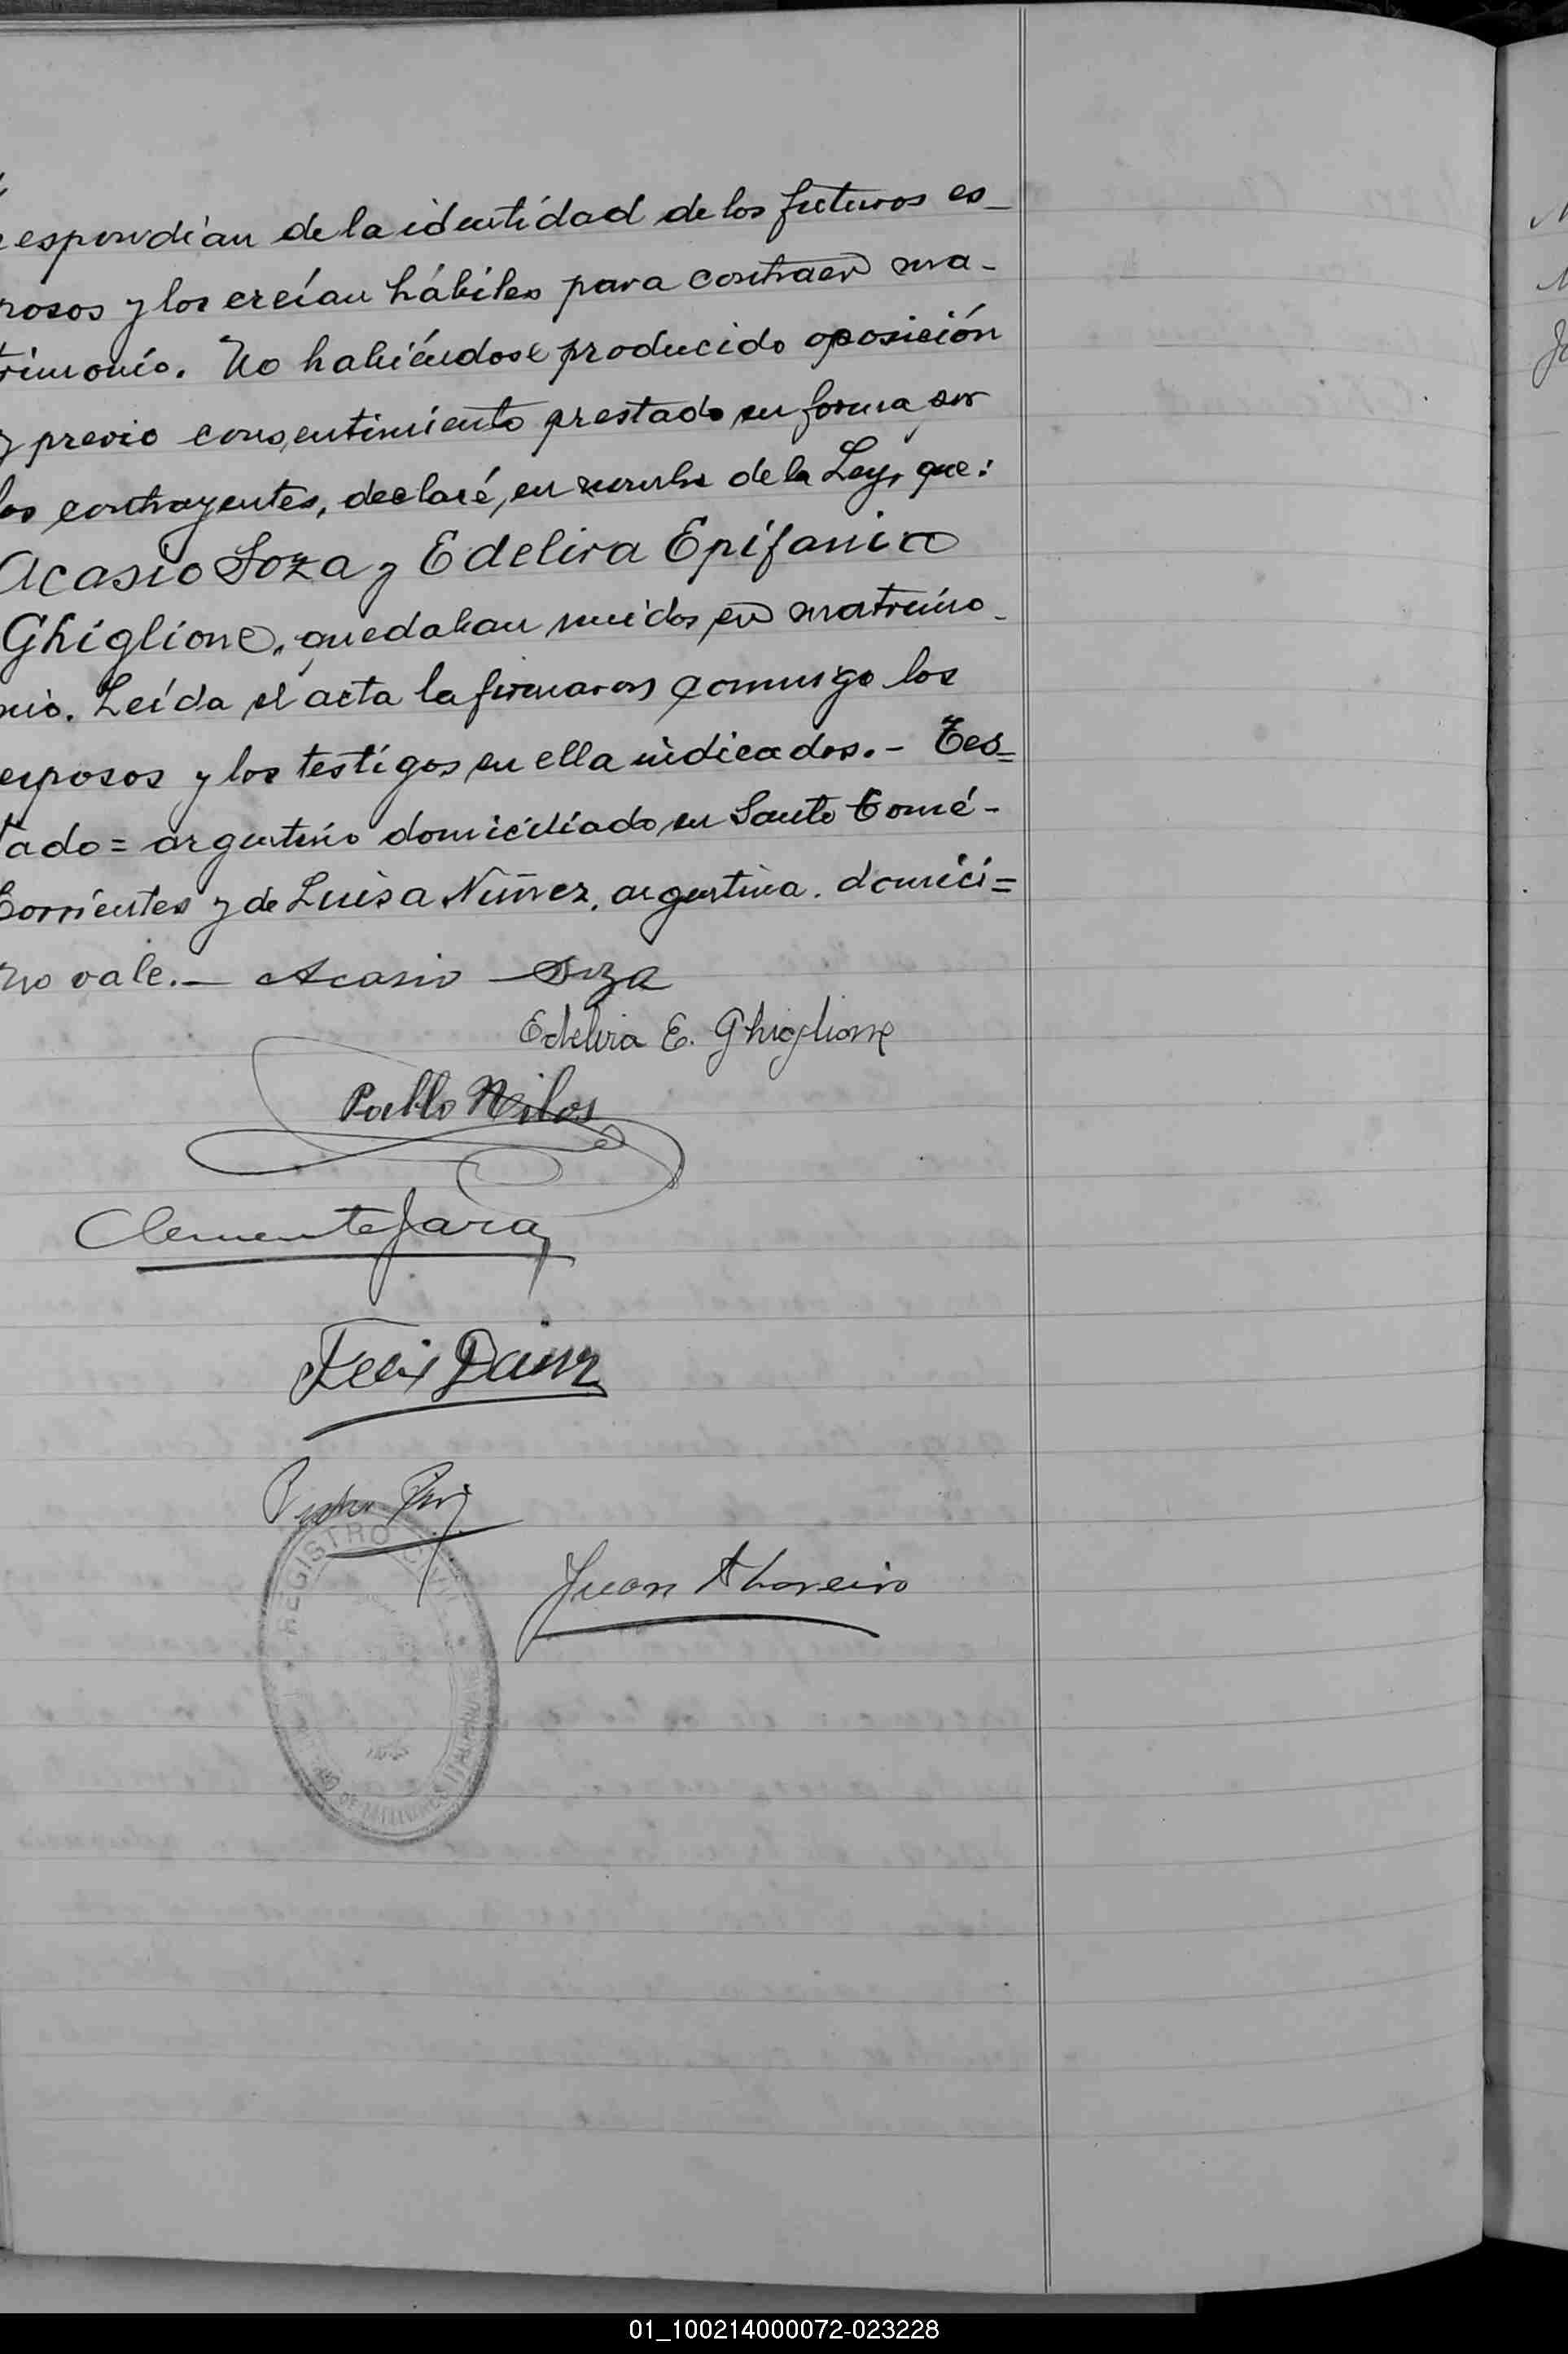 espondían de la identidad de los futuros es-
posos y los creían hábiles para contraer ma-
trimonio. No habiéndose producido oposición
y previo consentimiento prestado en forma por
los contrayentes, declaré, en nombre de la Ley, que:
Acasio Soza y Edelira Epifania
Ghiglione, quedaban unidos en matrimo-
nio. Leída el acta la firmaron conmigo los
esposos y los testigos en ella indicados.- Tes=
tado = argentino domiciliado en Santo Tomé-
Corrientes y de Luisa Núñez, argentina. domici=
no vale.- Acasio Soza
Edelira E. Ghiglione
Pablo
Clemente Jara
Felix
REGISTRO CIVIL
Juan
01_100214000072-023228